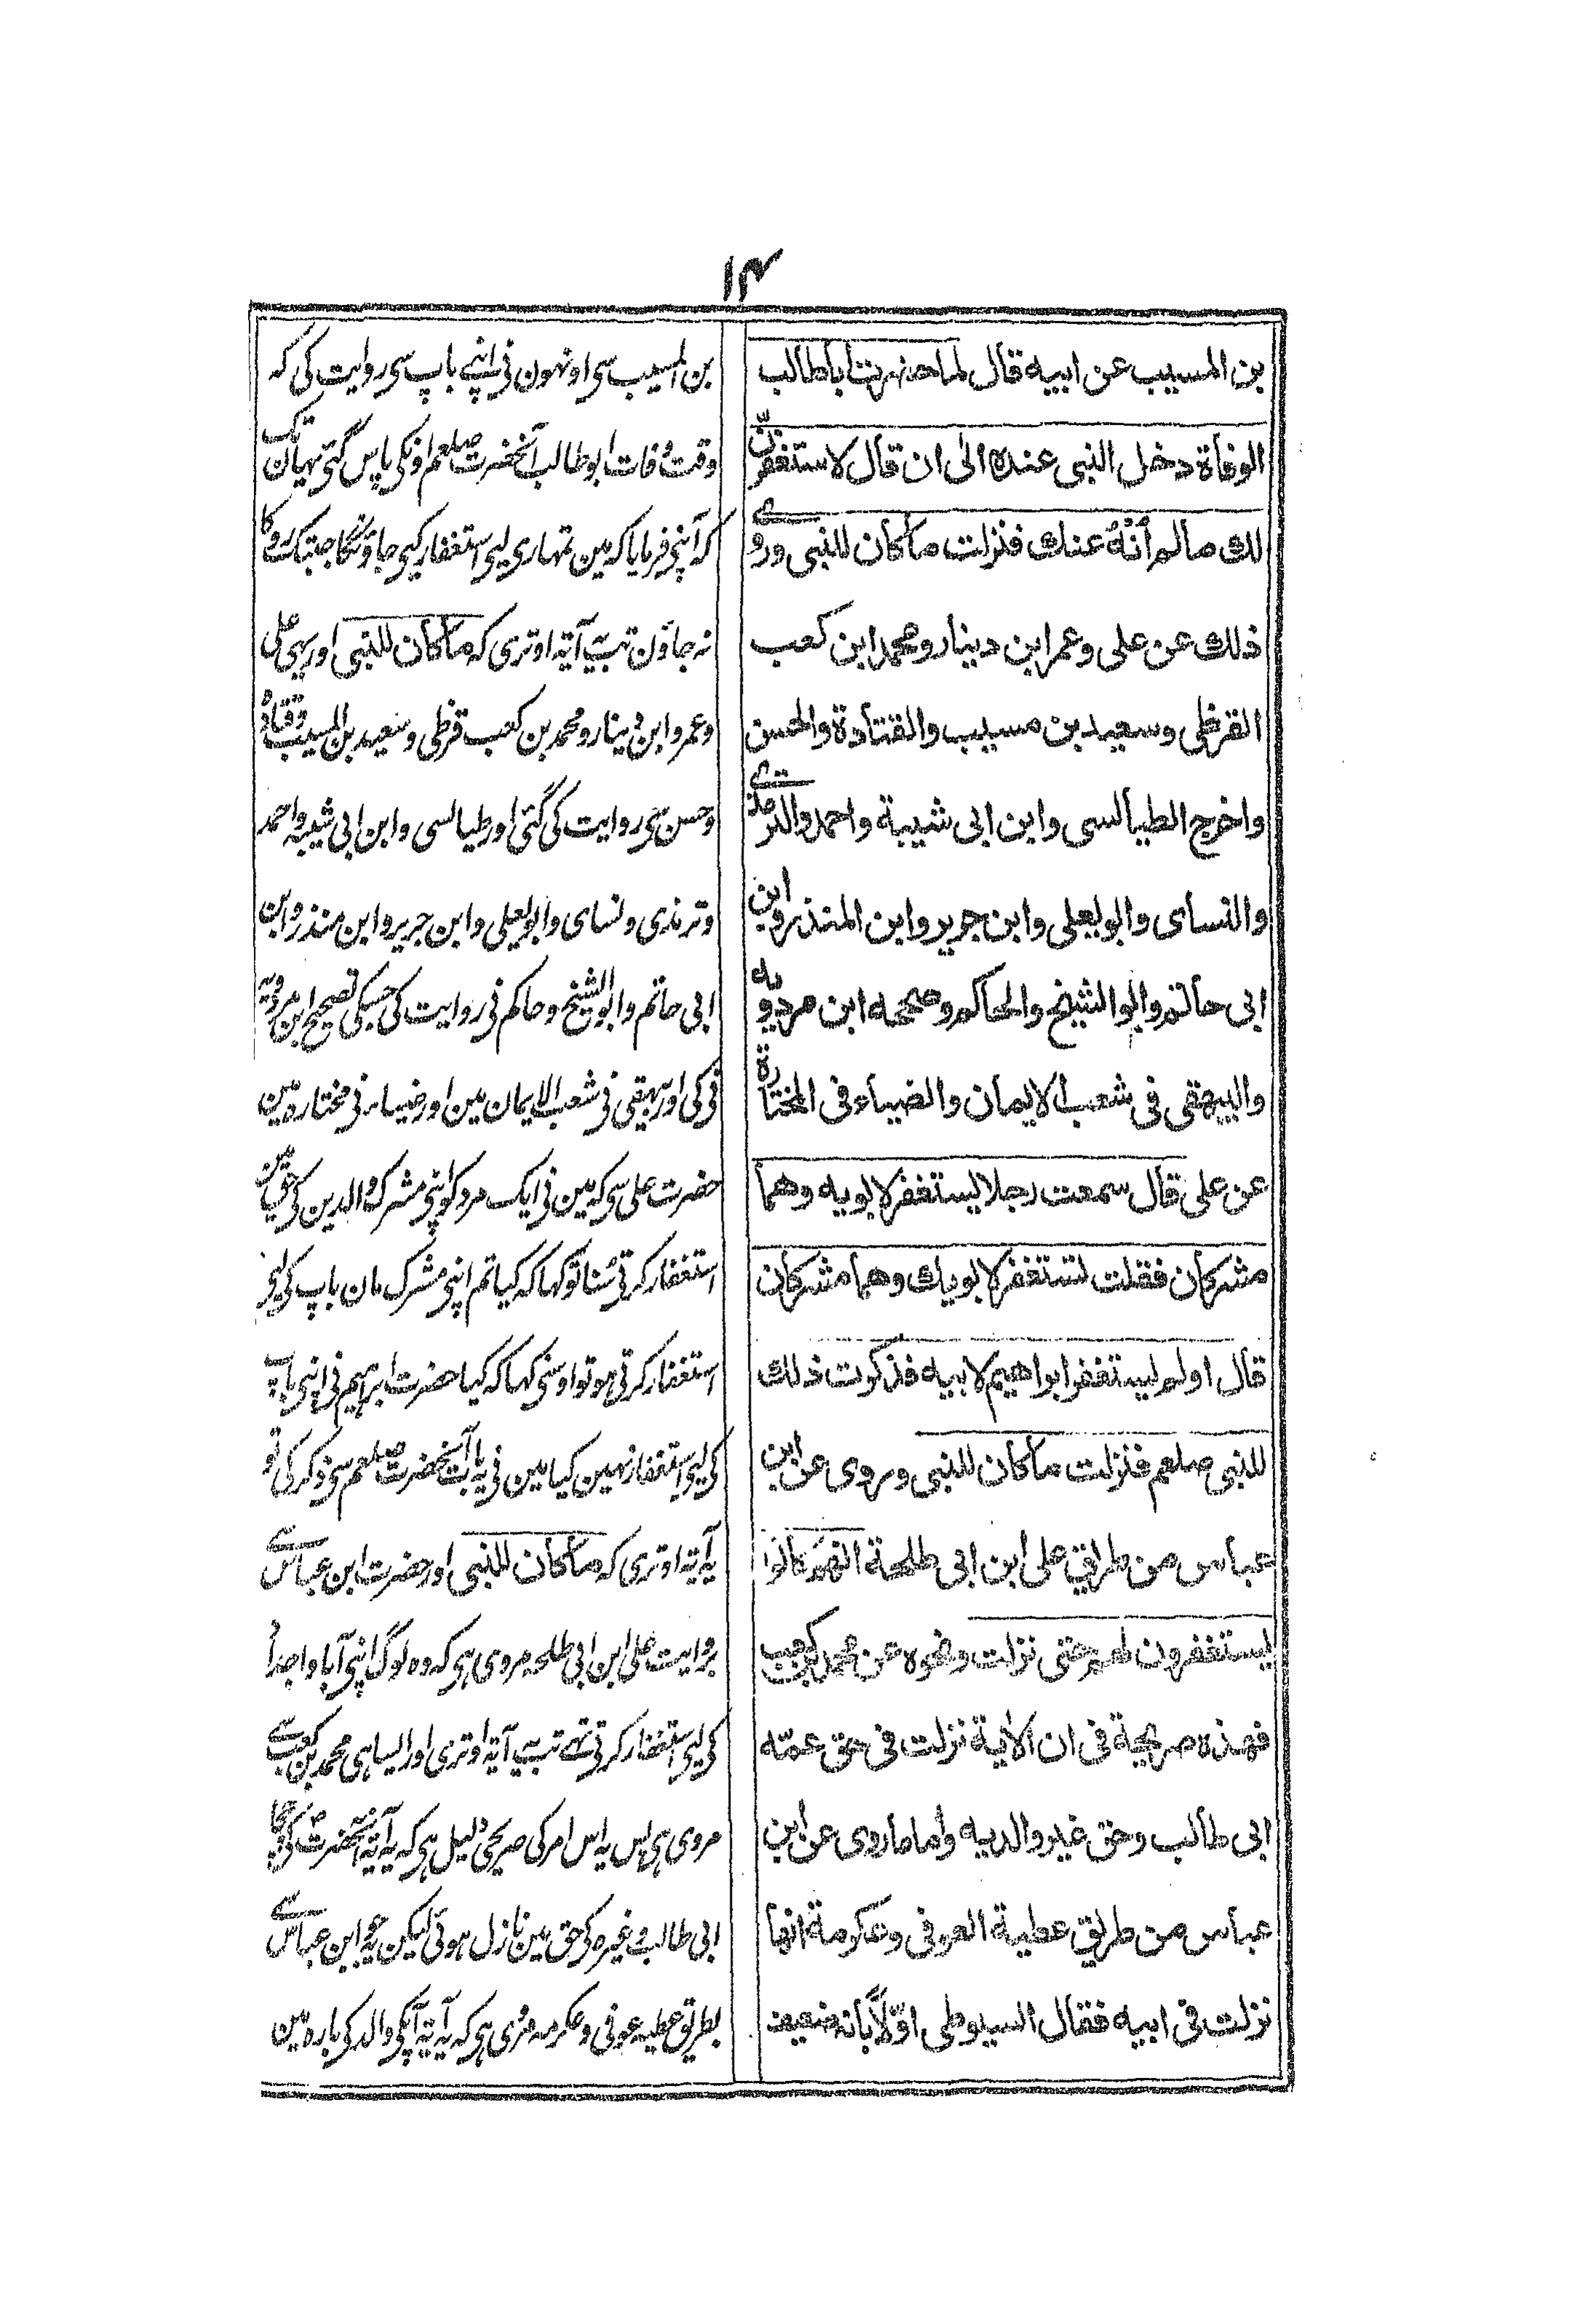 ۱۴
بن المسیب عن ابیه قال لما حضرت اباطالب
الوفاة دخل النبی عنده الی ان قال لاستغفرنّ
لك مالم اُنْهَ عنك فنزلت ماكان للنبی وروے
ذلك عن علی وعمر ابن دینار ومحمد ابن كعب
القرظی وسعید بن مسیب والقتادة والحسن
واخرج الطیالسی وابن ابی شیبة واحمد والترمذے
والنسای وابویعلی وابن جریر وابن المنذر وابن
ابی حاتم وابوالشیخ والحاكم وصححه ابن مردویه
والبیهقی فی شعب الایمان والضیاء فی المختارة
عن علی قال سمعت رجلا یستغفر لابویه وهما
مشركان فقلت تستغفر لابویك وهما مشركان
قال اولم یستغفر ابراهیم لابیه فذكرت ذلك
للنبی صلعم فنزلت ماكان للنبی وروی عن ابن
عباس من طریق علی ابن ابی طلحة انهم كانوا
یستغفرون لهم حتی نزلت ونحوه عن محمد بن كعب
فهذه صریحة فی ان الآیة نزلت فی حق عمّه
ابی طالب وحق غیر والدیه واما ماروی عن ابن
عباس من طریق عطیة العوفی وعكرمة انها
نزلت فی ابیه فقال السیوطی اوّلاً بانه ضعیف
بن المسیب سی اونہون نی اپنے باپ سی روایت کی کہ
وقت وفات ابوطالب آنحضرت صلعم اونکی پاس گئی یہان تک
کہ آپنی فرمایا کہ مین تمہاری لیی استغفار کیی جاؤنگا جبتک روکا
نہ جاؤن تب یہ آیۃ اوتری کہ ماكان للنبی اور یہی علی
وعمرو ابن دینار ومحمد بن کعب قرظی وسعید بن المسیب وقتادہ
وحسن سی روایت کی گئی اور طیالسی وابن ابی شیبہ واحمد
وترمذی ونسای وابویعلی وابن جریر وابن منذر وابن
ابی حاتم وابوالشیخ وحاکم نی روایت کی جسکی تصحیح ابن مردویہ
نی کی اور بیہقی نی شعب الایمان مین اور ضیاء نی مختارہ مین
حضرت علی سی کہ مین نی ایک مرد کو اپنی مشرک والدین کی حق مین
استغفار کرتی سُنا تو کہا کہ کیا تم اپنی مشرک مان باپ کی لیی
استغفار کرتی ہو تو اوسنی کہا کہ کیا حضرت ابراہیم نی اپنی باپ
کی لیی استغفار نہین کیا مین نی یہ بات آنحضرت صلعم سی ذکر کی تو
یہ آیۃ اوتری کہ ماكان للنبی اور حضرت ابن عباس سے
بروایت علی ابن ابی طلحہ مروی ہی کہ وہ لوگ اپنی آبا واجداد
کی لیی استغفار کرتی تھے تب یہ آیۃ اوتری اور ایسا ہی محمد بن کعب سے
مروی ہی پس یہ اس امر کی صریحی دلیل ہی کہ یہ آیۃ آنحضرت کی چچا
ابی طالب وغیرہ کی حق مین نازل ہوئی لیکن جو ابن عباس سے
بطریق عطیہ عوفی وعکرمہ مروی ہی کہ یہ آیۃ آپکی والد کی بارہ مین